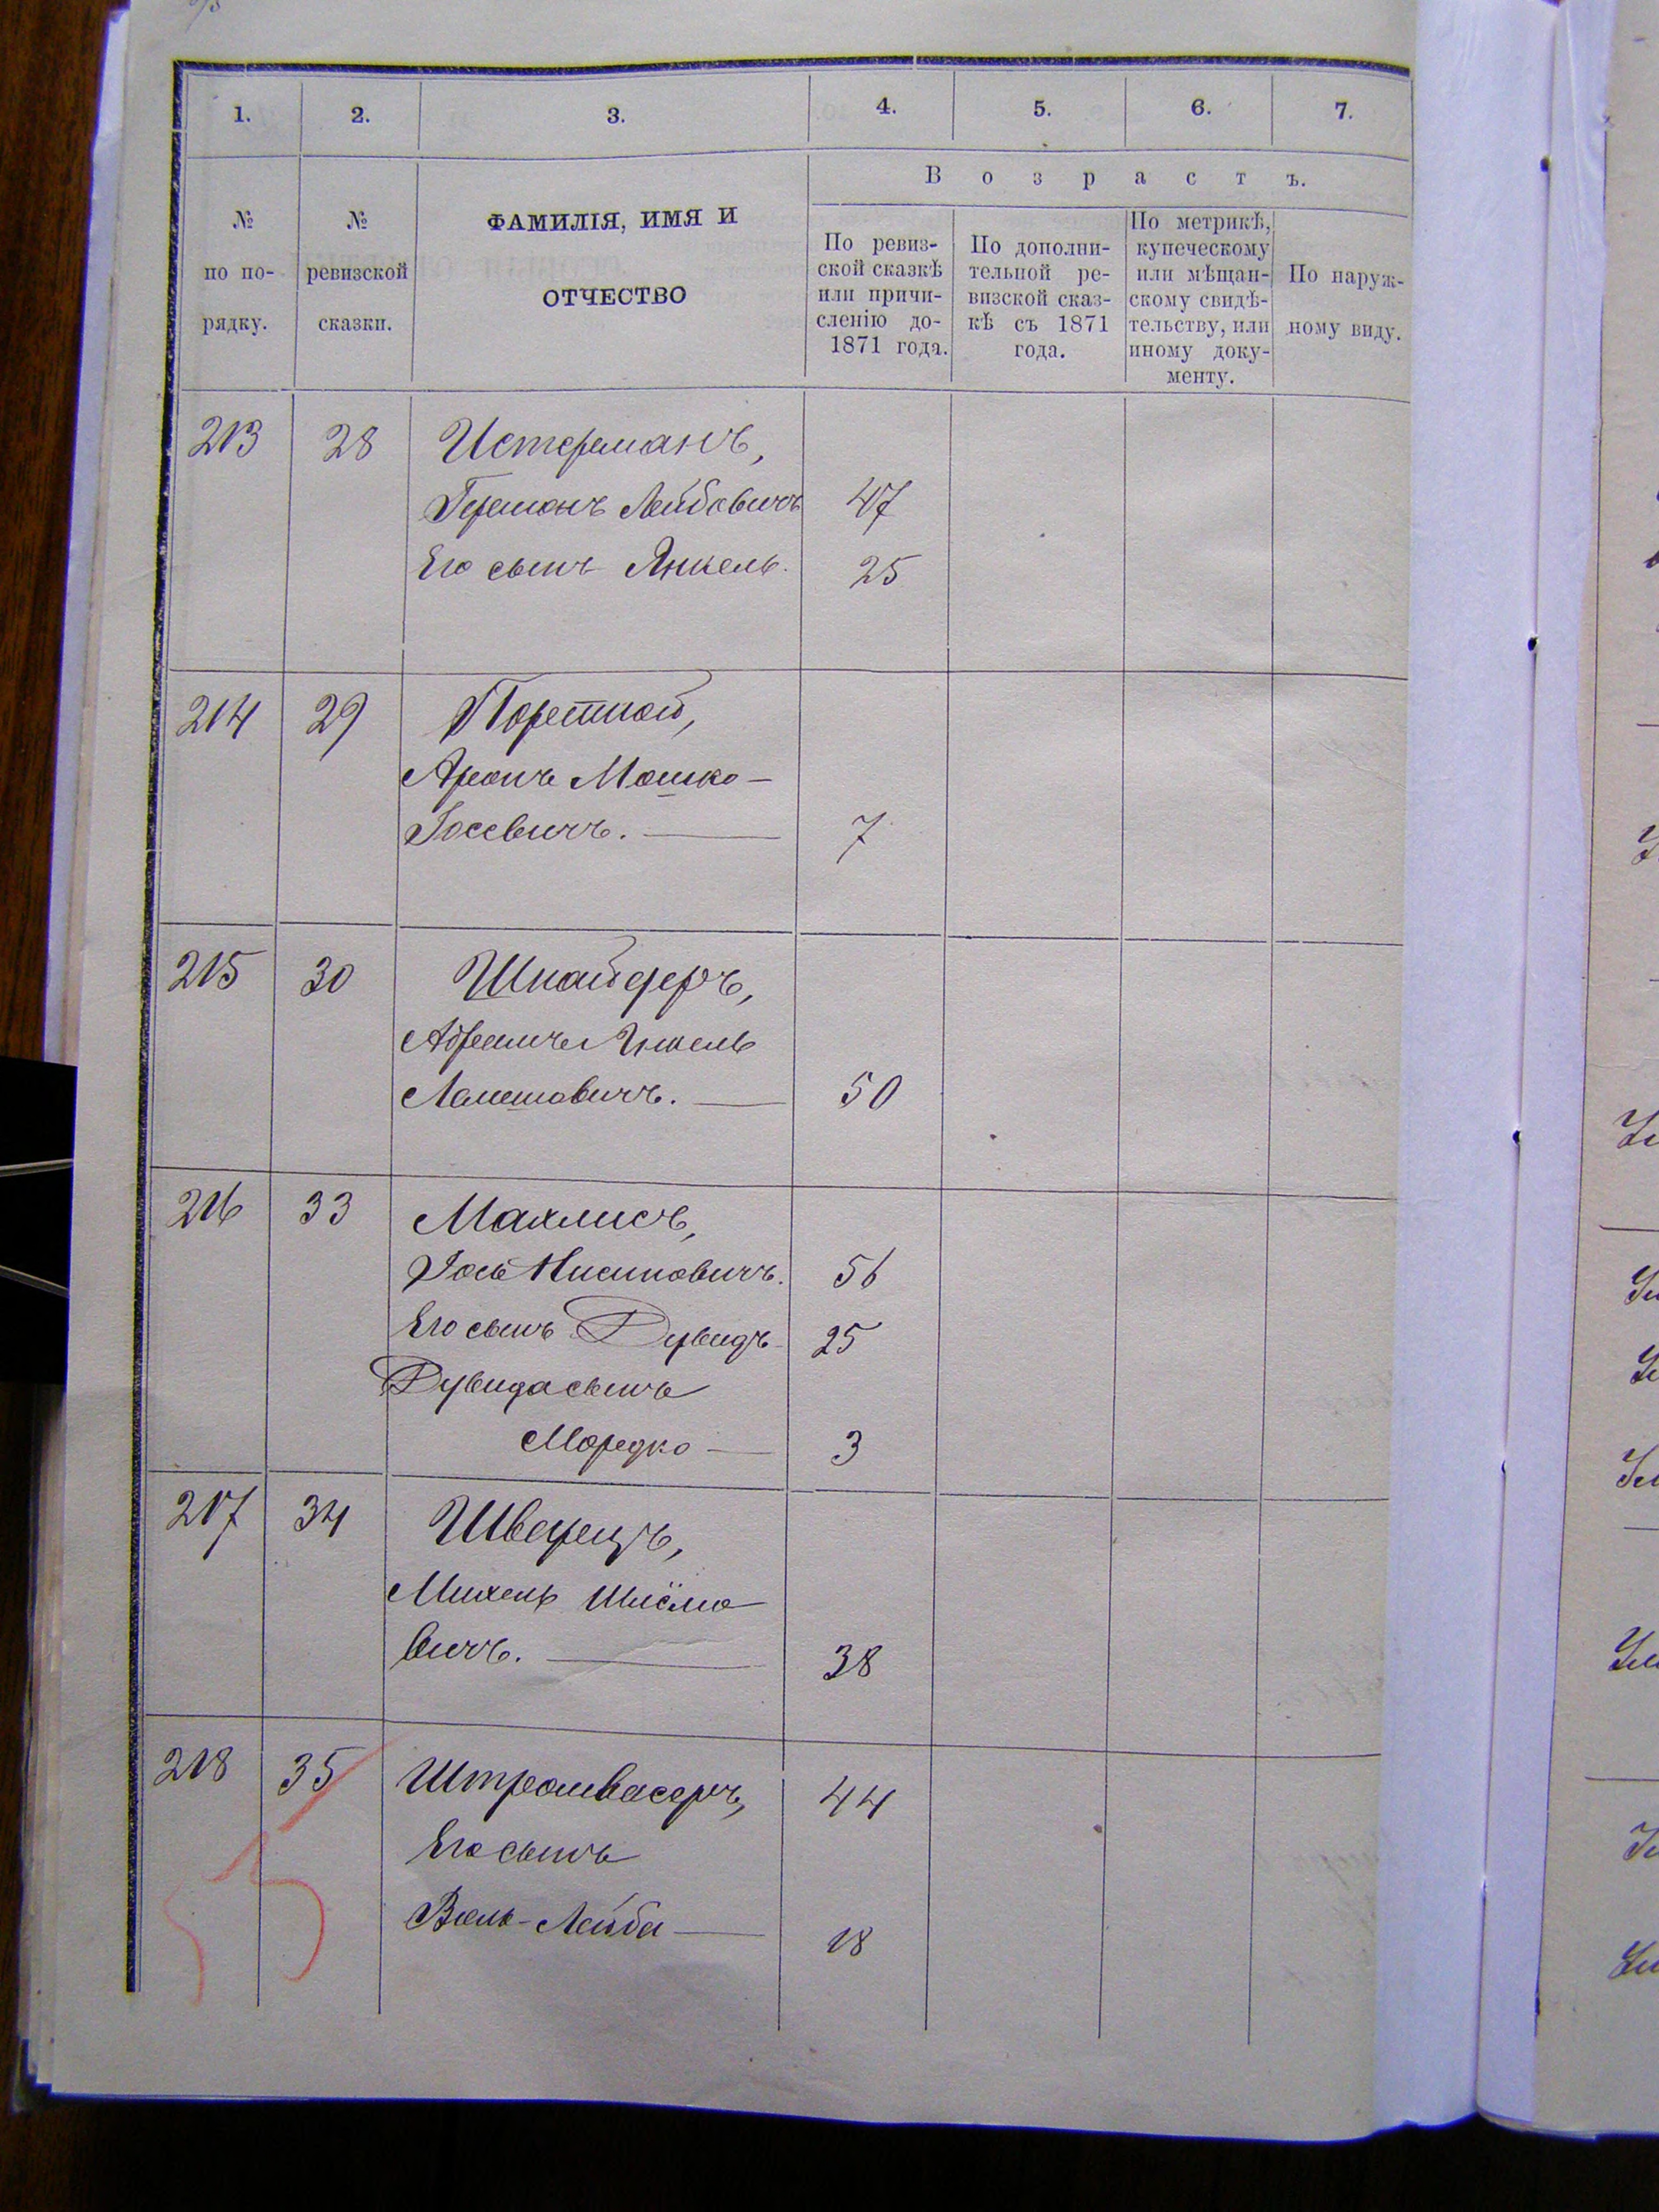 1. 2. 3. 4. 5. 6. 7.
№ по по- рядку.
№ ревизской сказки.
ФАМИЛІЯ, ИМЯ И
ОТЧЕСТВО
В о з р а с т ъ.
По ревиз-
ской сказкѣ
или причи-
сленію до-
1871 года.
По дополни-
тельной ре-
визской сказ-
кѣ съ 1871
года.
По метрикѣ,
купеческому
или мѣщан-
скому свидѣ-
тельству, или
иному доку-
менту.
По наруж-
ному виду.
213 28 Истерманъ,
Германъ Лейбовичъ 47
Его сынъ Янкель. 25
214 29 Портной,
Аронъ Мошко-
Іосевичъ. 7
215 30 Шнайдеръ,
Абрамъ Янкель
50
216 33 Махлисъ,
Іось Нисиновичъ. 56
Его сынъ Дувидъ 25
Дувида сынъ
Мордко 3
217 34 Шварцъ,
Михель Шлёмо
вичъ. 38
218 35 Штромвасеръ, 44
Его сынъ
Лейба 18